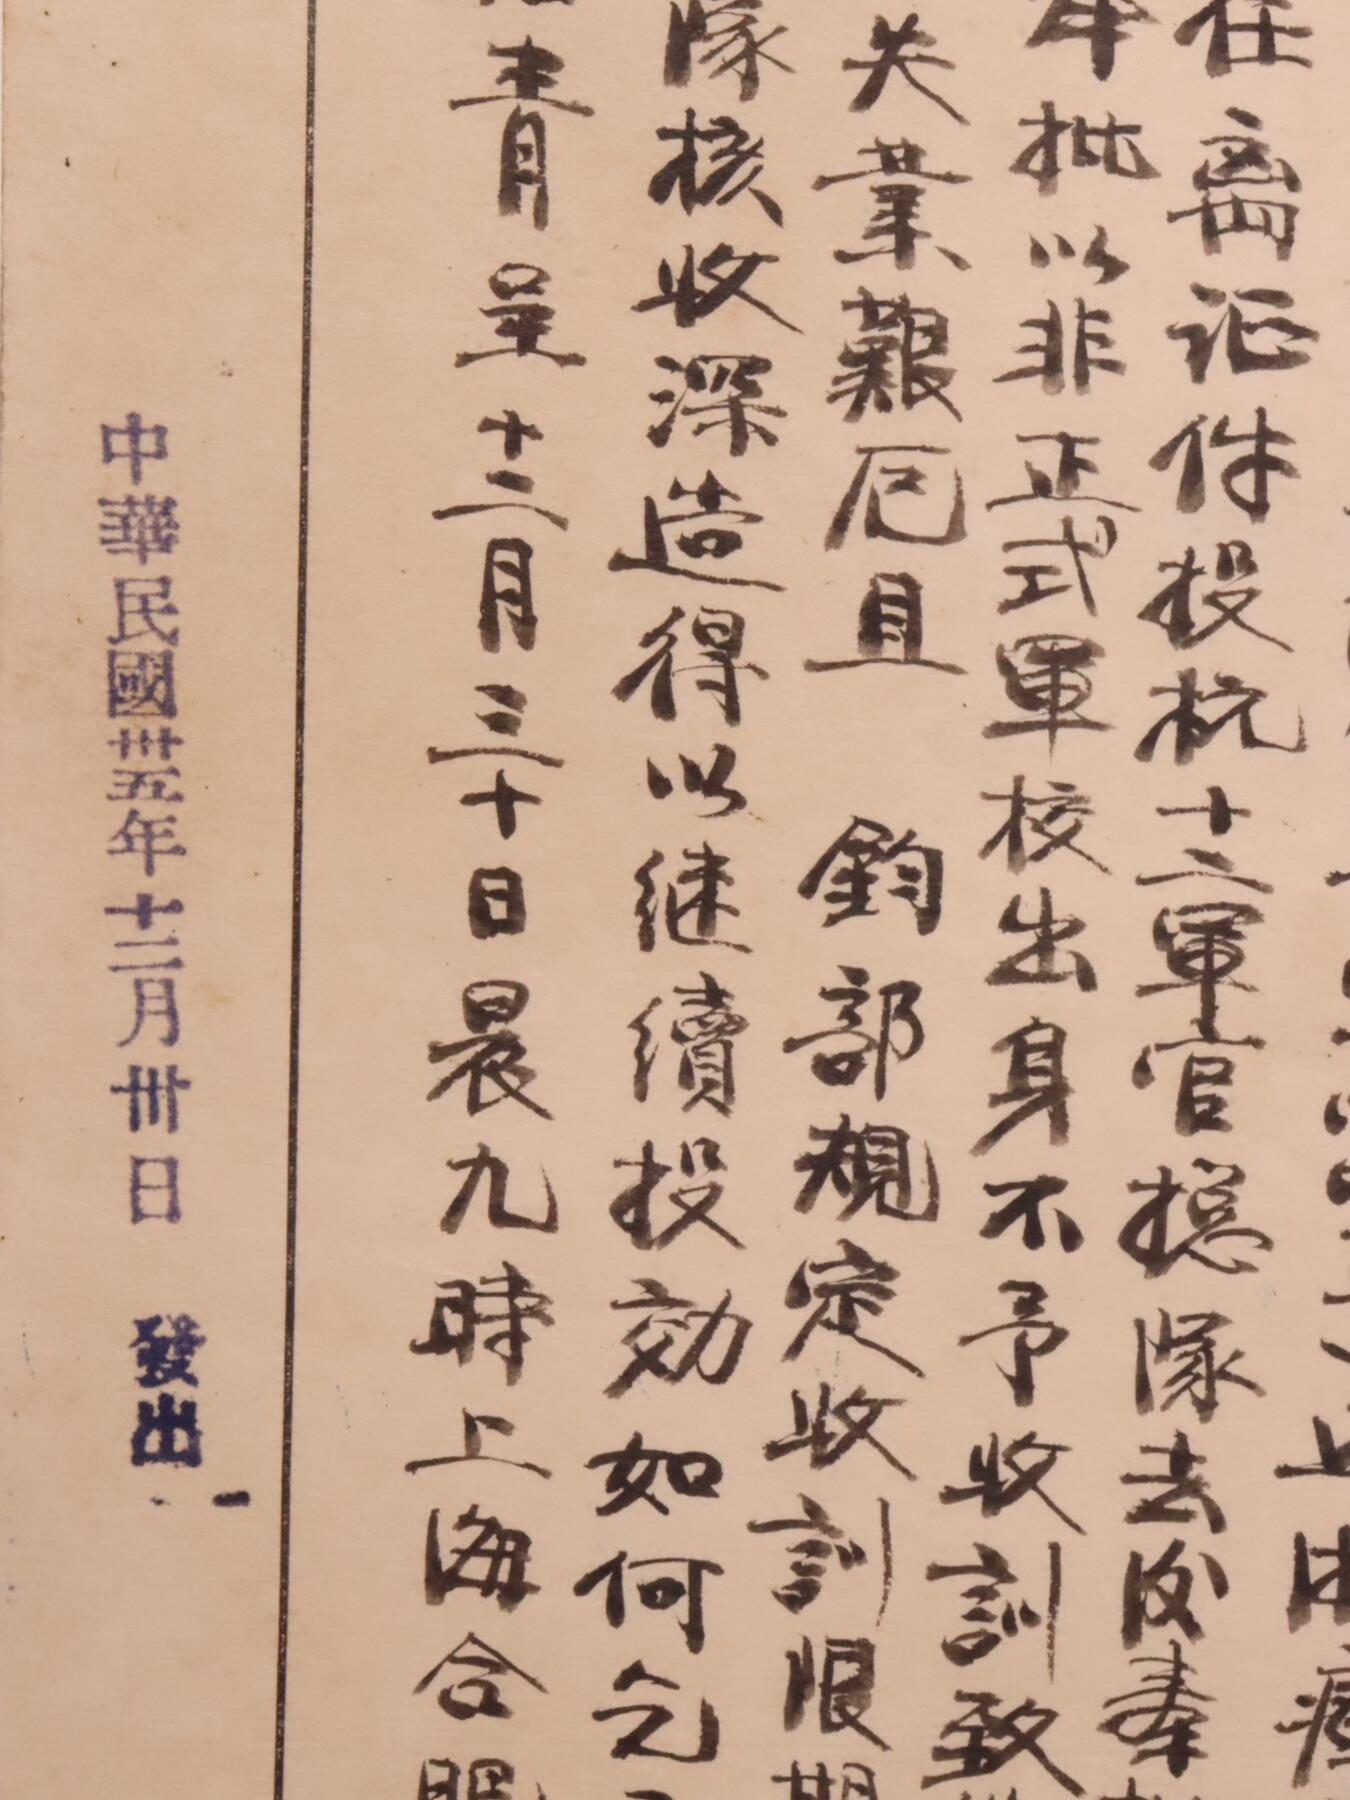 在离证件投杭十二军官总隊去后奉
本批以非正式軍校出身不予收訓致
失業艱厄且 鈞部規定收訓限期
隊核收深造得以继續投効如何乞
青呈十二月三十日晨九時上海合
中華民國卅五年十二月卅日 發出